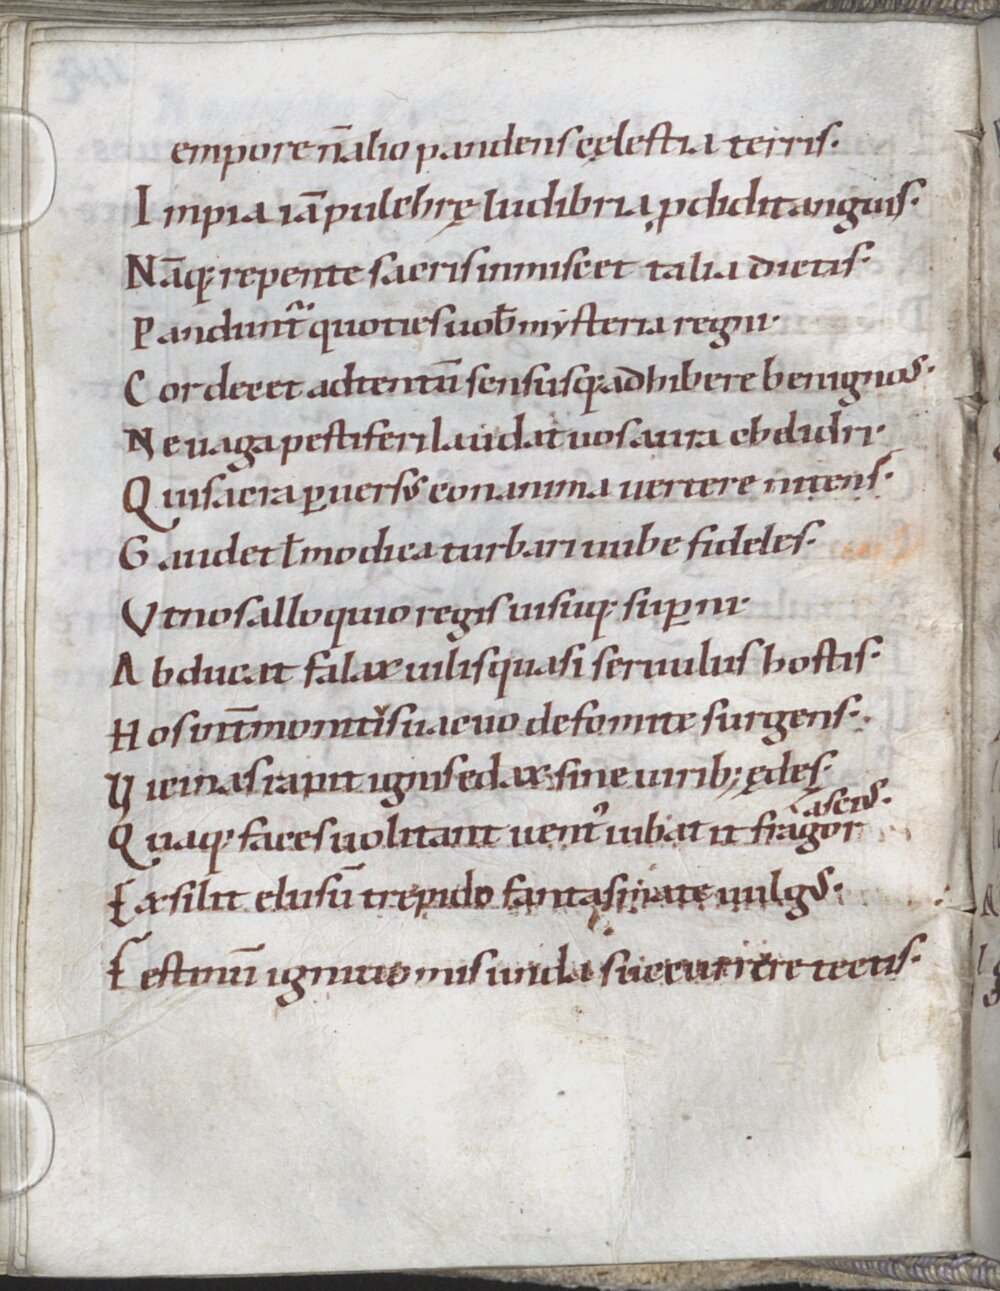 empore n̄ alio pandens cęlestia terris·
Impia iā pulchrę ludibria ꝓdidit anguis·
Nāq; repente sacris inmiscet talia dictis·
Pandunt᷑ quoties uob̄ mysteria regni·
Cor decet adtentū sensusq; adhibere benignos·
Ne uaga pestiferi laudat uos aura chelidri·
Qui sacra ꝑuerso conamina uertere nitens·
Gaudet ł modica turbari nube fideles·
Ut nos alloquio regis uisuq; suꝑni·
Abducat falax uilis quasi seruulus hostis·
Hos int̄ monitus uacuo de fomite surgens·
Hicinas rapit ignis edax sine uirib; ędes·
Quaq; faces uolitant uent᷒ uibat it fragor
ascens·
Exsilit elusū trepido fantasmate uulgꝰ·
Festinūt ignitiuomis unda succurrere tectis·